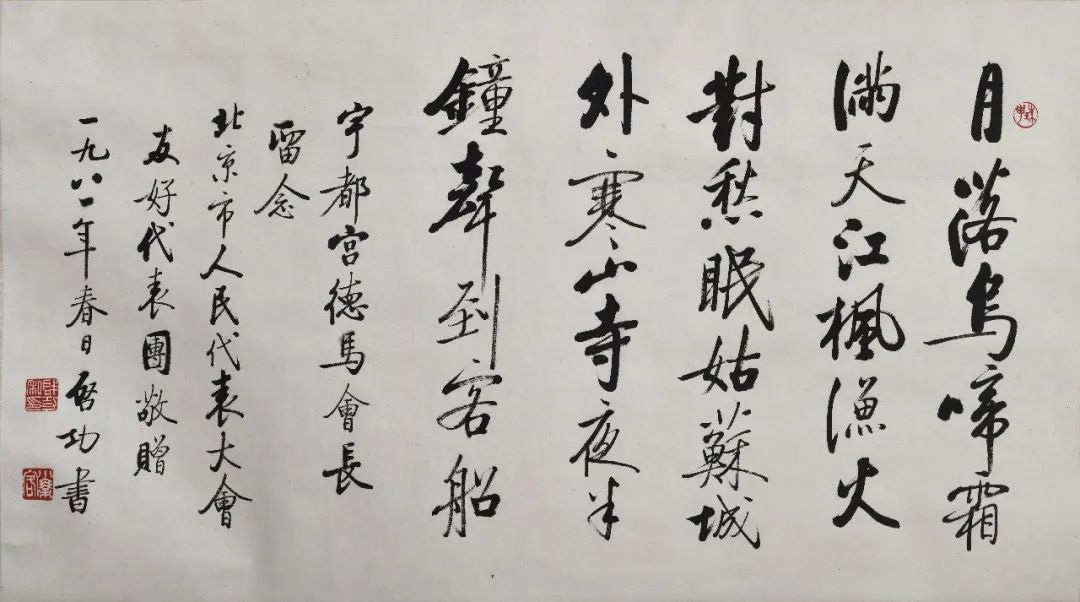 月落烏啼霜
滿天江楓漁火
對愁眠姑蘇城
外寒山寺夜半
鐘聲到客船
宇都宮德馬會長
留念
北京市人民代表大會
友好代表團敬贈
一九八一年春日啓功書